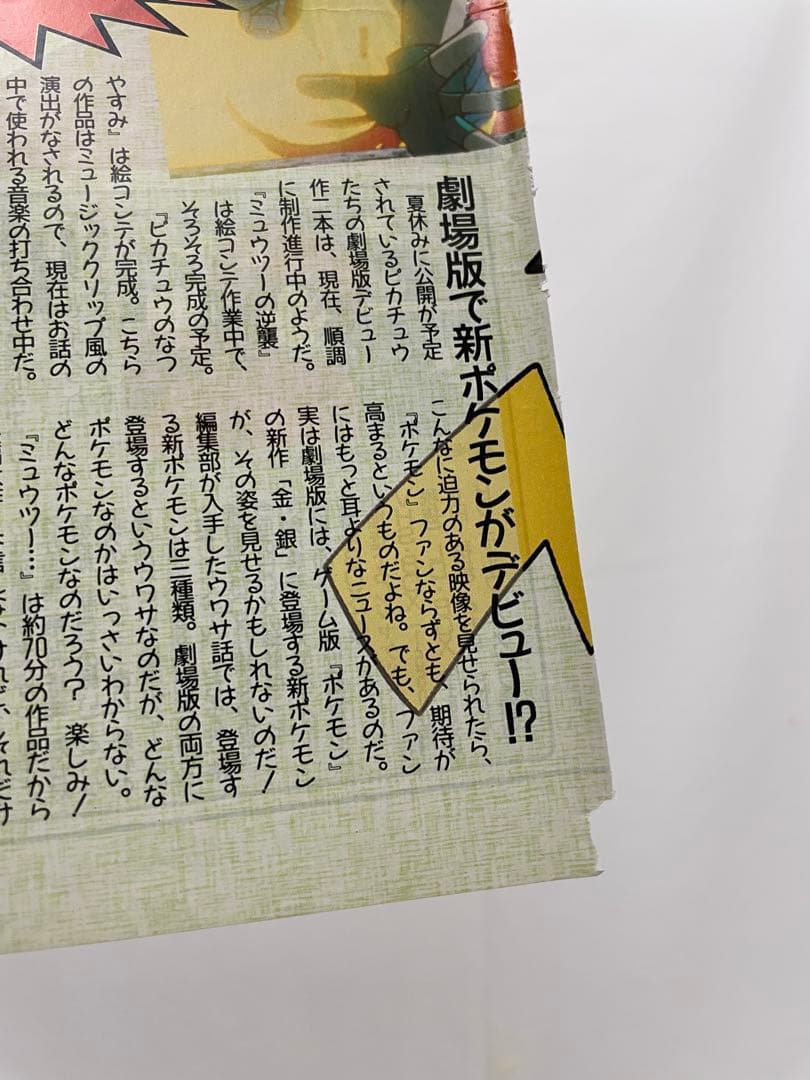 劇場版で新ポケモンがデビュー!?
夏休みに公開が予定
されているピカチュウ
たちの劇場版デビュー
作二本は、現在、順調
に制作進行中のようだ。
『ミュウツーの逆襲』
は絵コンテ作業中で、
そろそろ完成の予定。
『ピカチュウのなつ
やすみ』は絵コンテが完成。こちら
の作品はミュージッククリップ風の
演出がなされるので、現在はお話の
中で使われる音楽の打ち合わせ中だ。
こんなに迫力のある映像を見せられたら、
『ポケモン』ファンならずとも、期待が
高まるというものだよね。でも、ファン
にはもっと耳よりなニュースがあるのだ。
実は劇場版には、ゲーム版『ポケモン』
の新作「金・銀」に登場する新ポケモン
が、その姿を見せるかもしれないのだ!
編集部が入手したウワサ話では、登場す
る新ポケモンは三種類。劇場版の両方に
登場するというウワサなのだが、どんな
ポケモンなのかはいっさいわからない。
どんなポケモンなのだろう? 楽しみ!
『ミュウツー…』は約70分の作品だから